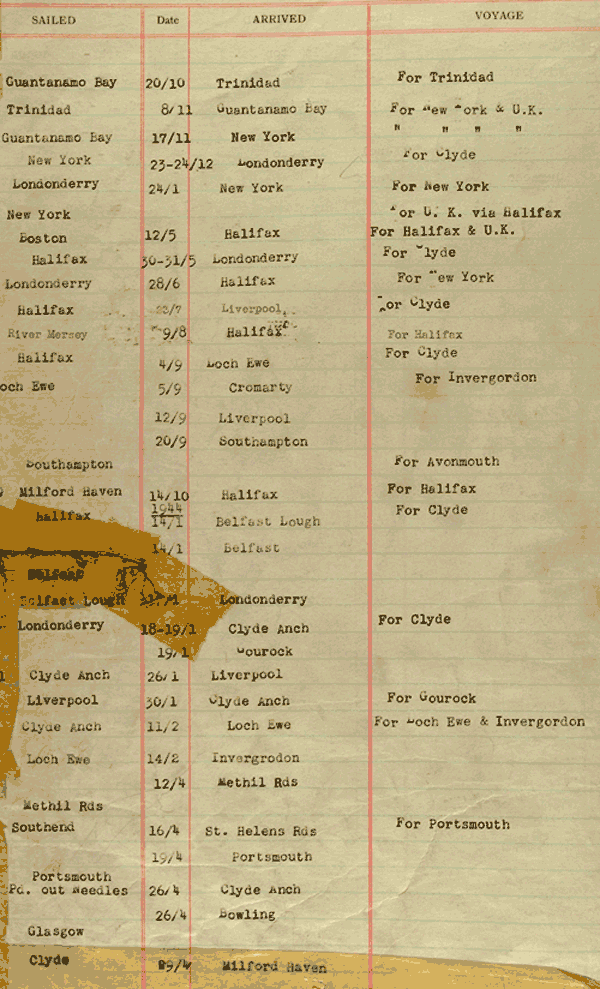 SAILED Date ARRIVED VOYAGE
Guantanamo Bay 20/10 Trinidad For Trinidad
Trinidad 8/11 Guantanamo Bay For New York & U.K.
Guantanamo Bay 17/11 New York " " " "
New York 23-24/12 Londonderry For Clyde
Londonderry 24/1 New York For New York
New York For U. K. via Halifax
Boston 12/5 Halifax For Halifax & U.K.
Halifax 30-31/5 Londonderry For Clyde
Londonderry 28/6 Halifax For New York
Halifax /7 Liverpool. For Clyde
River Mersey 9/8 Halifax For Halifax
Halifax 4/9 Loch Ewe For Clyde
och Ewe 5/9 Cromarty For Invergordon
12/9 Liverpool
20/9 Southampton
Southampton For Avonmouth
Milford Haven 14/10 Halifax For Halifax
1944
Halifax 14/1 Belfast Lough For Clyde
14/1 Belfast
Belfast
Belfast Lough Londonderry
Londonderry 18-19/1 Clyde Anch For Clyde
19/1 Gourock
Clyde Anch 26/1 Liverpool
Liverpool 30/1 Clyde Anch For Gourock
Clyde Anch 11/2 Loch Ewe For Loch Ewe & Invergordon
Loch Ewe 14/2 Invergrodon
12/4 Methil Rds
Methil Rds
Southend 16/4 St. Helens Rds For Portsmouth
19/4 Portsmouth
Portsmouth
Pd. out Needles 26/4 Clyde Anch
26/4 Bowling
Glasgow
Clyde 29/4 Milford Haven